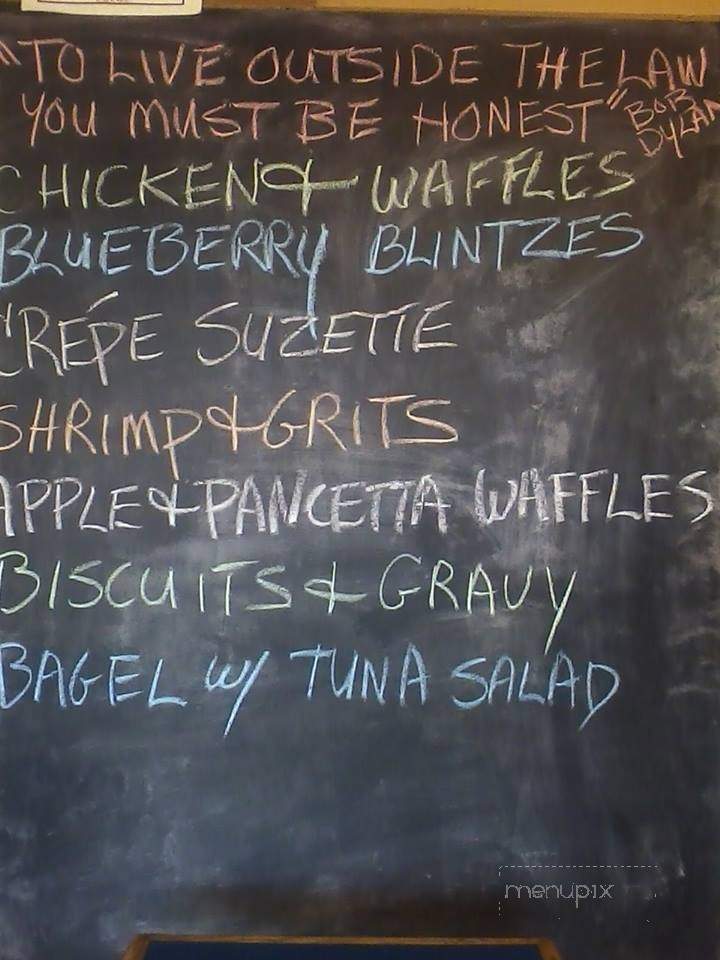 "TO LIVE OUTSIDE THE LAW
YOU MUST BE HONEST" BOB DYLAN
CHICKEN & WAFFLES
BLUEBERRY BLINTZES
CRÉPE SUZETTE
SHRIMP & GRITS
APPLE & PANCETTA WAFFLES
BISCUITS & GRAVY
BAGEL W/ TUNA SALAD
menupix